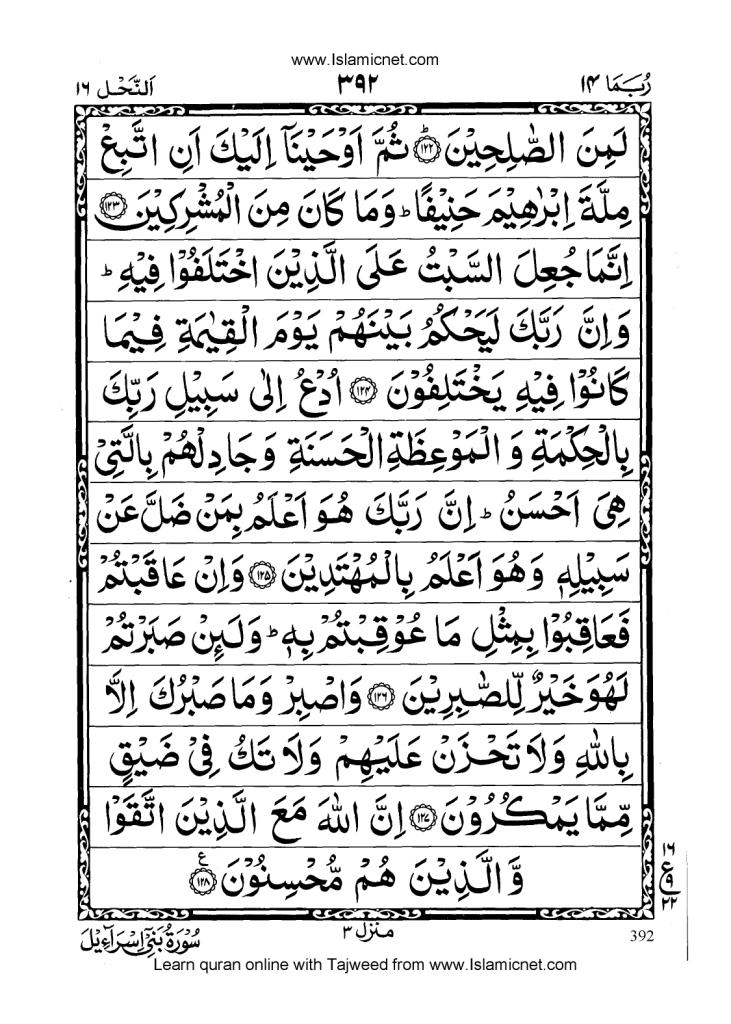 www.Islamicnet.com
رُبَمَا ۱۴
۳۹۲
اَلنَّحْل ۱۶
لَمِنَ الصّٰلِحِيْنَ ۱۲۲ؕ ثُمَّ اَوْحَيْنَاۤ اِلَيْكَ اَنِ اتَّبِعْ
مِلَّةَ اِبْرٰهِيْمَ حَنِيْفًا ؕ وَمَا كَانَ مِنَ الْمُشْرِكِيْنَ ۱۲۳
اِنَّمَا جُعِلَ السَّبْتُ عَلَى الَّذِيْنَ اخْتَلَفُوْا فِيْهِ ؕ
وَاِنَّ رَبَّكَ لَيَحْكُمُ بَيْنَهُمْ يَوْمَ الْقِيٰمَةِ فِيْمَا
كَانُوْا فِيْهِ يَخْتَلِفُوْنَ ۱۲۴ اُدْعُ اِلٰى سَبِيْلِ رَبِّكَ
بِالْحِكْمَةِ وَ الْمَوْعِظَةِ الْحَسَنَةِ وَجَادِلْهُمْ بِالَّتِيْ
هِيَ اَحْسَنُ ؕ اِنَّ رَبَّكَ هُوَ اَعْلَمُ بِمَنْ ضَلَّ عَنْ
سَبِيْلِهٖ وَهُوَ اَعْلَمُ بِالْمُهْتَدِيْنَ ۱۲۵ وَاِنْ عَاقَبْتُمْ
فَعَاقِبُوْا بِمِثْلِ مَا عُوْقِبْتُمْ بِهٖ ؕ وَلَىِٕنْ صَبَرْتُمْ
لَهُوَ خَيْرٌ لِّلصّٰبِرِيْنَ ۱۲۶ وَاصْبِرْ وَمَا صَبْرُكَ اِلَّا
بِاللّٰهِ وَلَا تَحْزَنْ عَلَيْهِمْ وَلَا تَكُ فِيْ ضَيْقٍ
مِّمَّا يَمْكُرُوْنَ ۱۲۷ اِنَّ اللّٰهَ مَعَ الَّذِيْنَ اتَّقَوْا
وَّالَّذِيْنَ هُمْ مُّحْسِنُوْنَ ۱۲۸ ع
۱۶
ع
۹
۲۲
سُوْرَةُ بَنِيْٓ اِسْرَآءِيْل
منزل ۳
392
Learn quran online with Tajweed from www.Islamicnet.com